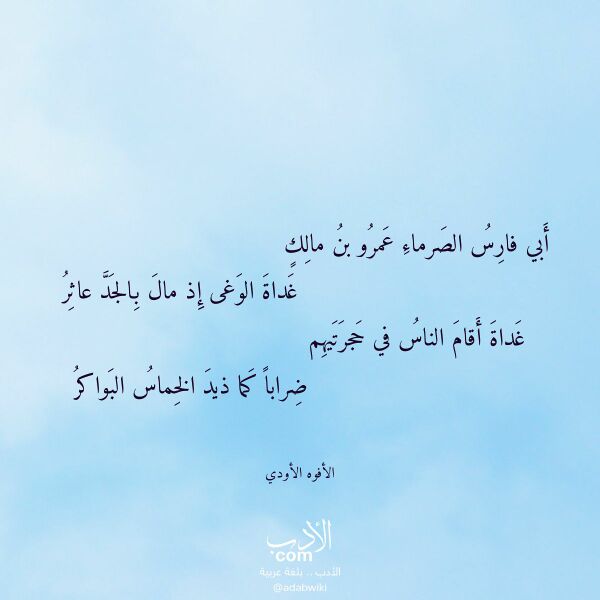 أَبي فارِسُ الصَرماءِ عَمرُو بنُ مالِكٍ
غَداةَ الوَغى إِذ مالَ بِالجَدَّ عاثِرُ
غَداةَ أَقامَ الناسُ في حَجرَتَيهِم
ضِراباً كَما ذيدَ الخِماسُ البَواكرُ
الأفوه الأودي
الأدب
com
الأدب .. بلغة عربية
@adabwiki